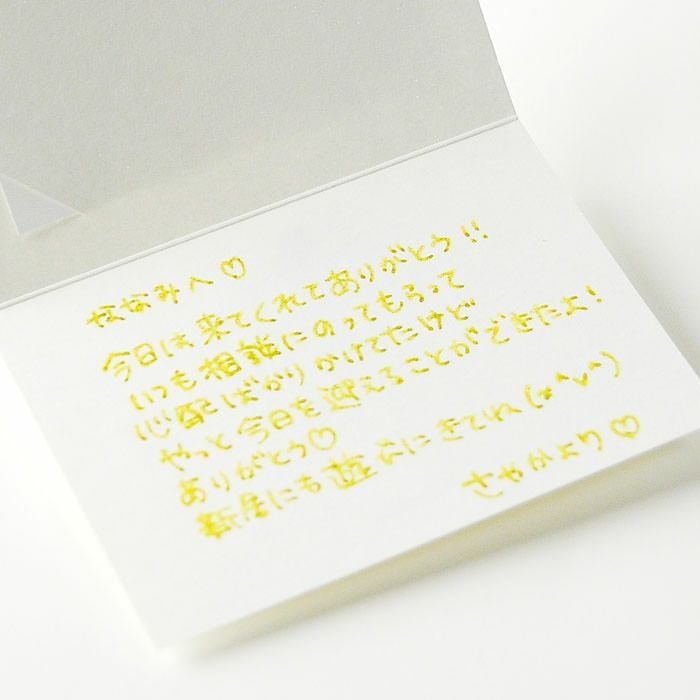 ななみへ♡
今日は来てくれてありがとう!!
いつも相談にのってもらって
心配ばかりかけてたけど
やっと今日を迎えることができたよ!
ありがとう♡
新居にも遊びにきてね(*^v^)
さやかより♡